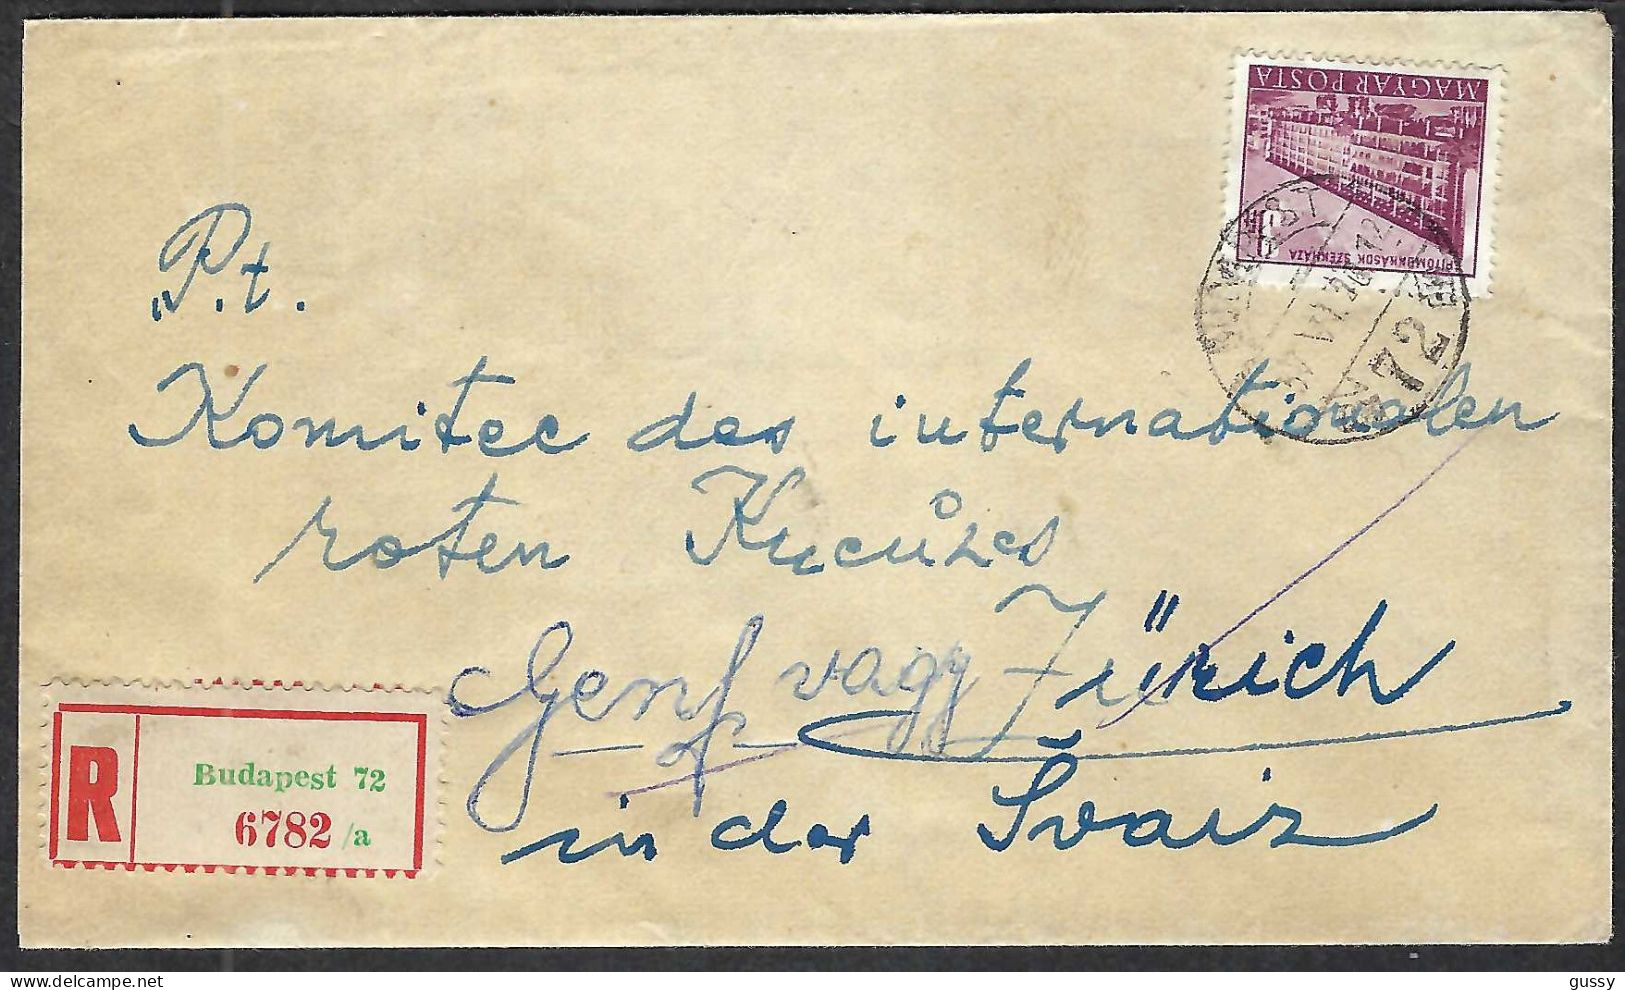 MAGYAR POSTA
ÉPÍTŐMUNKÁSOK SZÉKHÁZA
72
„P.t.
Komitee des internationalen
roten Kreuzes
Genf vagy Zürich
in der Svaiz
R
Budapest 72
6782 /a
gussy